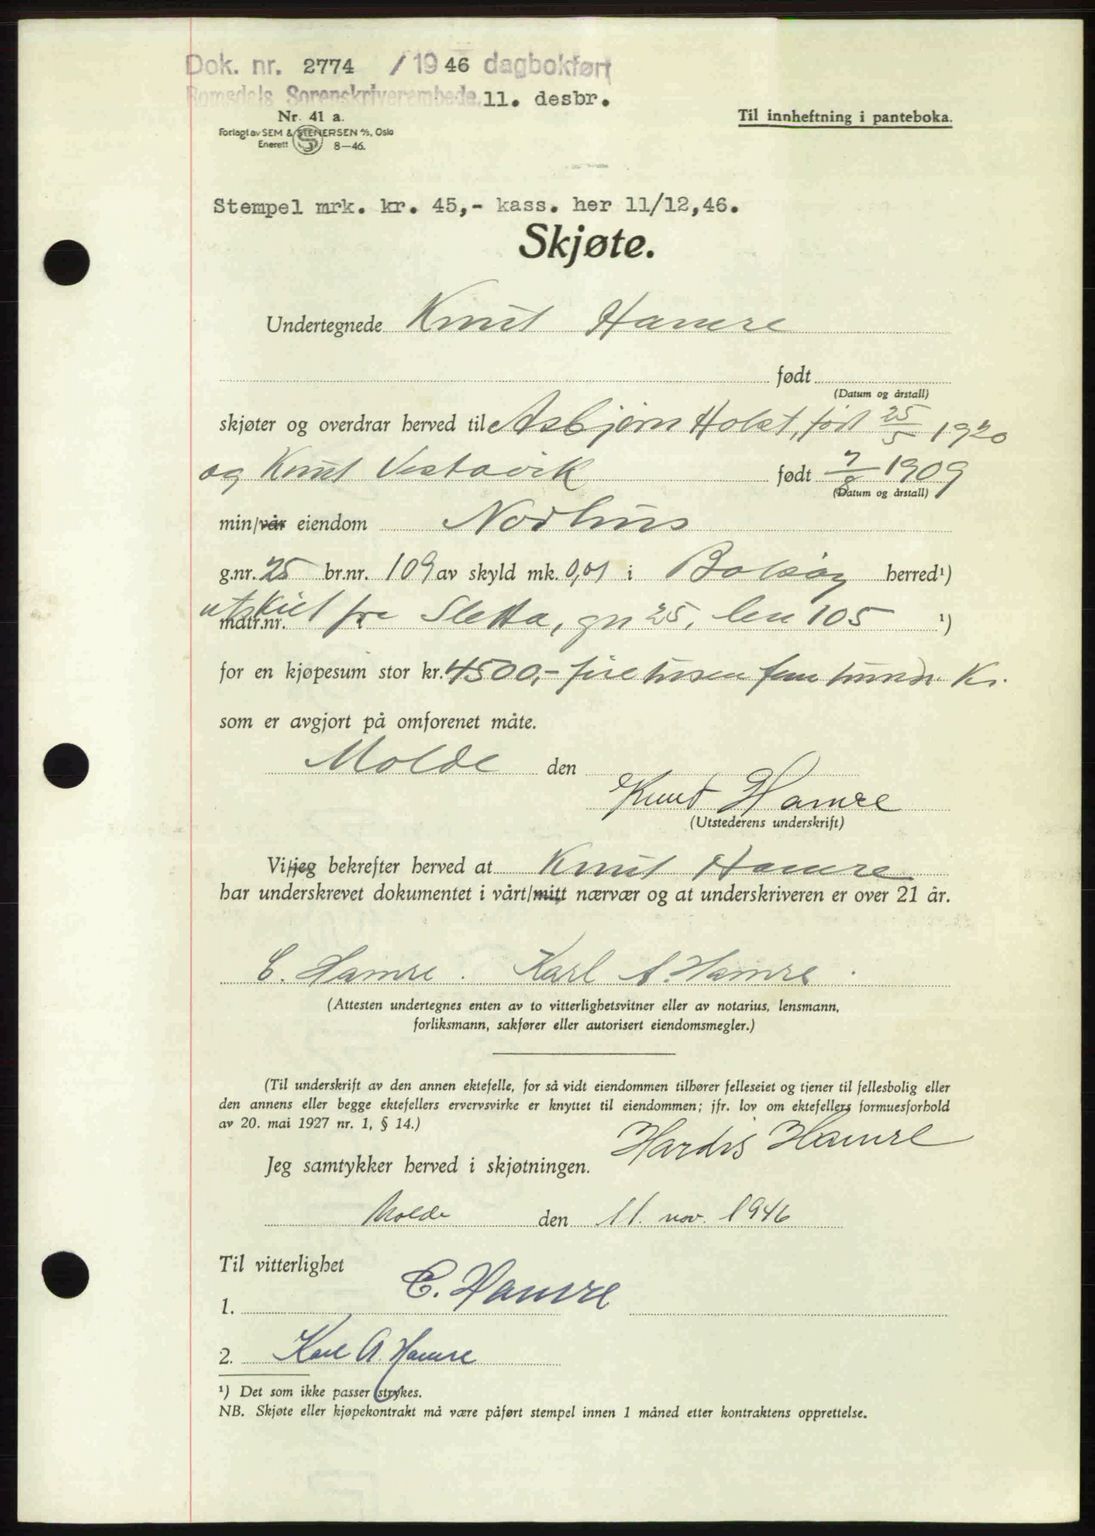 Dok. nr. 2774 / 1946 dagbokført
Romsdals Sorenskriverembede. 11. desbr.
Nr. 41 a.
Til innheftning i panteboka.
Forlagt av SEM & STENERSEN A/S, Oslo
Enerett S 8-46.
Stempel mrk. kr. 45,- kass. her 11/12,46.
Skjøte.
Undertegnede Knut Hamre
født
(Datum og årstall)
skjøter og overdrar herved til Asbjørn Holst, født 25/5 1920
og Knut Vestavik født 7/8 1909
(Datum og årstall)
min/vår eiendom Nordhus
g.nr. 25 br.nr. 109 av skyld mk. 0,01 i Bolsøy herred¹)
matr.nr. utskilt fra Sletta, gn 25, bnr 105 ¹)
for en kjøpesum stor kr. 4500,- fire tusen fem hundr. Kr.
som er avgjort på omforenet måte.
Molde den
Knut Hamre
(Utstederens underskrift)
Vi/jeg bekrefter herved at Knut Hamre
har underskrevet dokumentet i vårt/mitt nærvær og at underskriveren er over 21 år.
C. Hamre. Karl A. Hamre.
(Attesten undertegnes enten av to vitterlighetsvitner eller av notarius, lensmann,
forliksmann, sakfører eller autorisert eiendomsmegler.)
(Til underskrift av den annen ektefelle, for så vidt eiendommen tilhører felleseiet og tjener til fellesbolig eller
den annens eller begge ektefellers ervervsvirke er knyttet til eiendommen; jfr. lov om ektefellers formuesforhold
av 20. mai 1927 nr. 1, § 14.)
Hardis Hamre
Jeg samtykker herved i skjøtningen.
Molde den 11. nov. 1946
Til vitterlighet
1. C. Hamre
2. Karl A. Hamre
¹) Det som ikke passer strykes.
NB. Skjøte eller kjøpekontrakt må være påført stempel innen 1 måned etter kontraktens opprettelse.